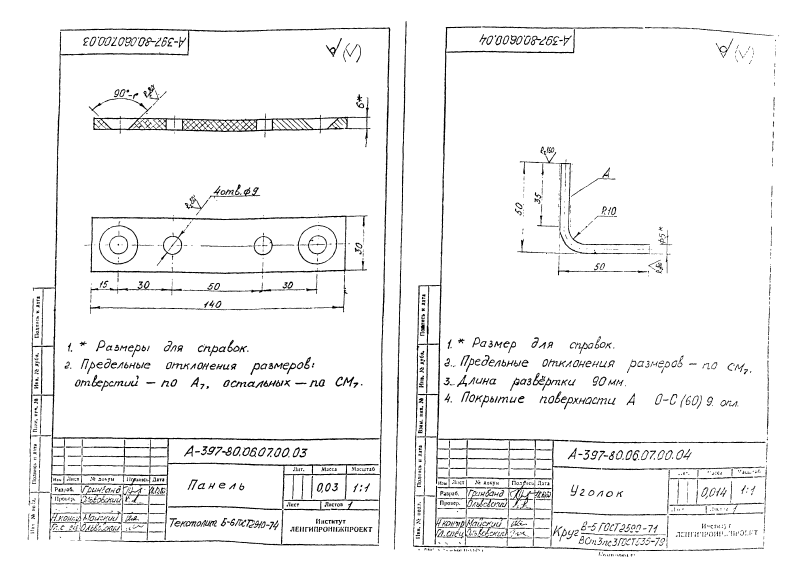 А-397-80.06.07.00.03
√(√)
90°
6*
4отв. ϕ9
30
15
30
50
30
140
1. * Размеры для справок.
2. Предельные отклонения размеров:
отверстий – по А7, остальных – по СМ7.
Подпись и дата
Инв. № дубл.
Взам. инв. №
Подпись и дата
Инв. № подл.
А-397-80.06.07.00.03
Панель
Изм Лист № докум Подпись Дата
Разраб. Гринганд
Провер. Ольвовский
Н.контр Майский
Гл.спец Ольвовский
Лит. Масса Масштаб
0,03 1:1
Лист Листов 1
Текстолит Б-6 ГОСТ2910-74
Институт
ЛЕНГИПРОИНЖПРОЕКТ
А-397-80.06.00.04
√(√)
А
50
35
R10
ϕ5*
50
1. * Размер для справок.
2. Предельные отклонения размеров – по СМ7.
3. Длина развёртки 90мм.
4. Покрытие поверхности А О-С(60)9. опл.
Подпись и дата
Инв. № дубл.
Взам. инв. №
Подпись и дата
Инв. № подл.
А-397-80.06.07.00.04
Уголок
Изм Лист № докум Подпись Дата
Разраб. Гринганд
Провер. Ольвовский
Н.контр Майский
Гл.спец Ольвовский
Лит. Масса Масштаб
0,014 1:1
Лист Листов 1
Круг В-5 ГОСТ2590-71
ВСт3пс3ГОСТ535-79
Институт
ЛЕНГИПРОИНЖПРОЕКТ